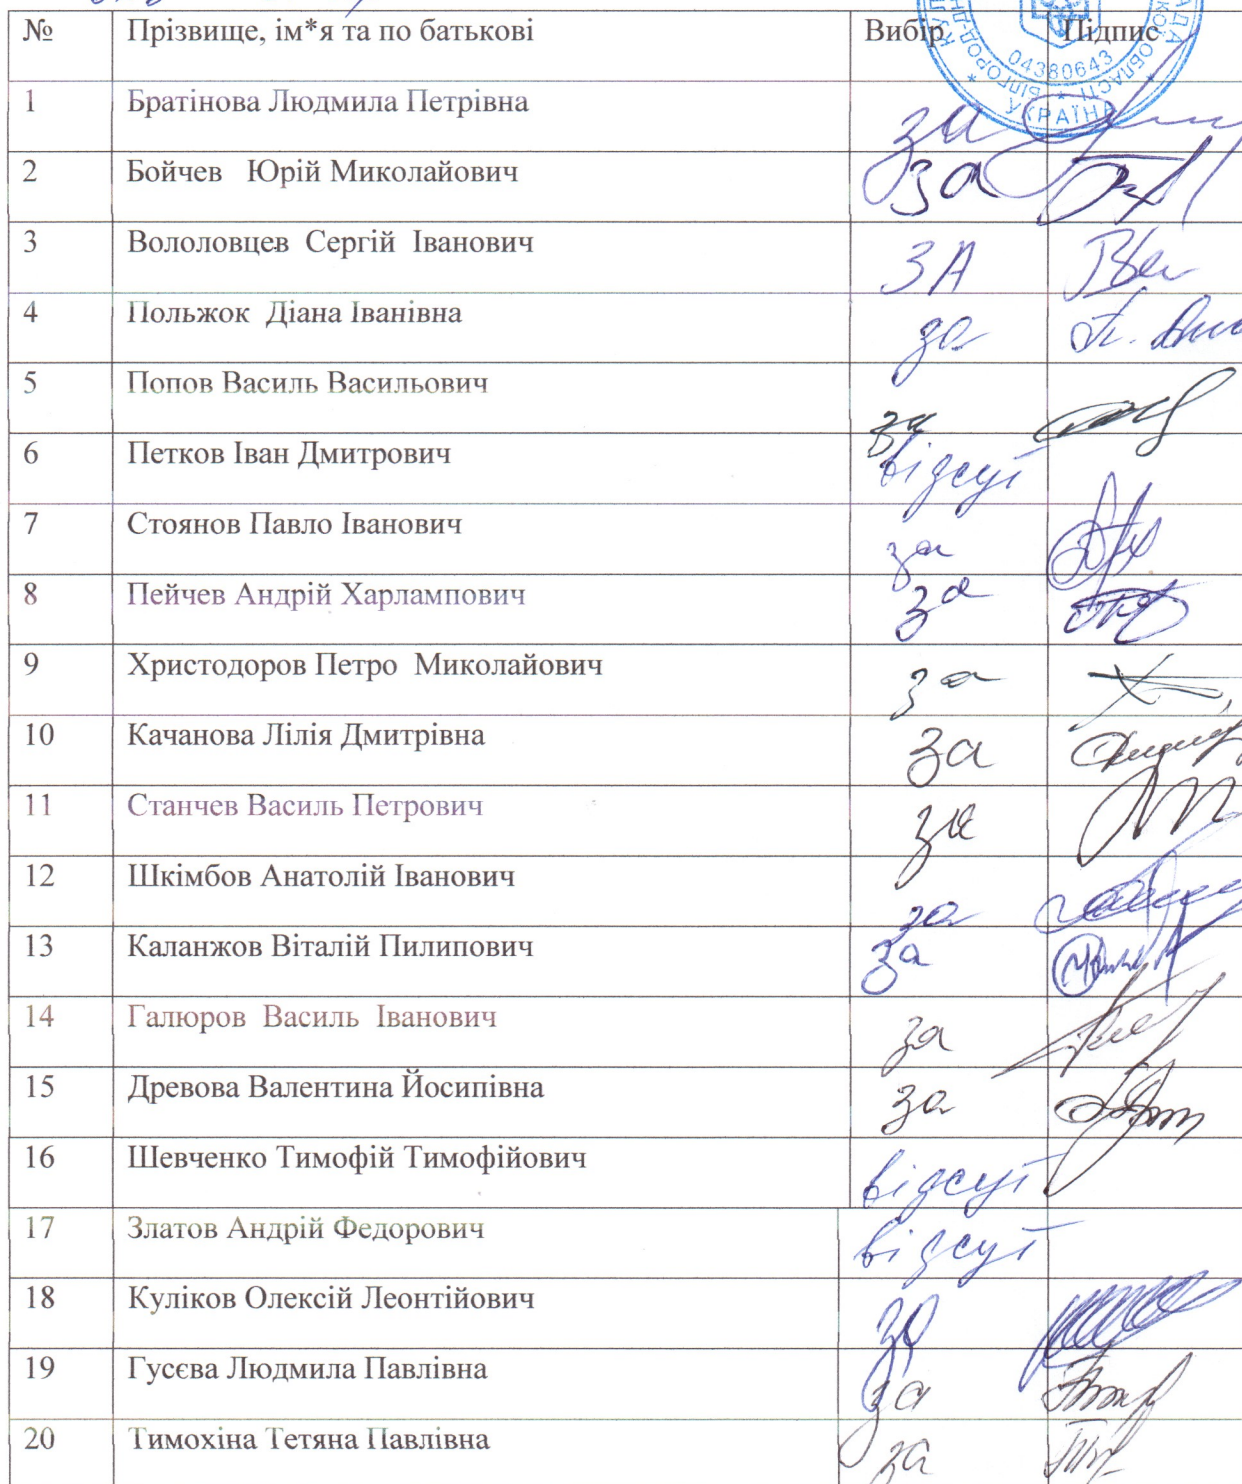 № Прізвище, ім*я та по батькові Вибір Підпис
04380643
УКРАЇНА
1 Братінова Людмила Петрівна за
2 Бойчев Юрій Миколайович за
3 Вололовцев Сергій Іванович ЗА
4 Польжок Діана Іванівна за
5 Попов Василь Васильович за
6 Петков Іван Дмитрович відсут
7 Стоянов Павло Іванович за
8 Пейчев Андрій Харлампович за
9 Христодоров Петро Миколайович за
10 Качанова Лілія Дмитрівна за
11 Станчев Василь Петрович за
12 Шкімбов Анатолій Іванович за
13 Каланжов Віталій Пилипович за
14 Галюров Василь Іванович за
15 Древова Валентина Йосипівна за
16 Шевченко Тимофій Тимофійович відсут
17 Златов Андрій Федорович відсут
18 Куліков Олексій Леонтійович за
19 Гусєва Людмила Павлівна за
20 Тимохіна Тетяна Павлівна за